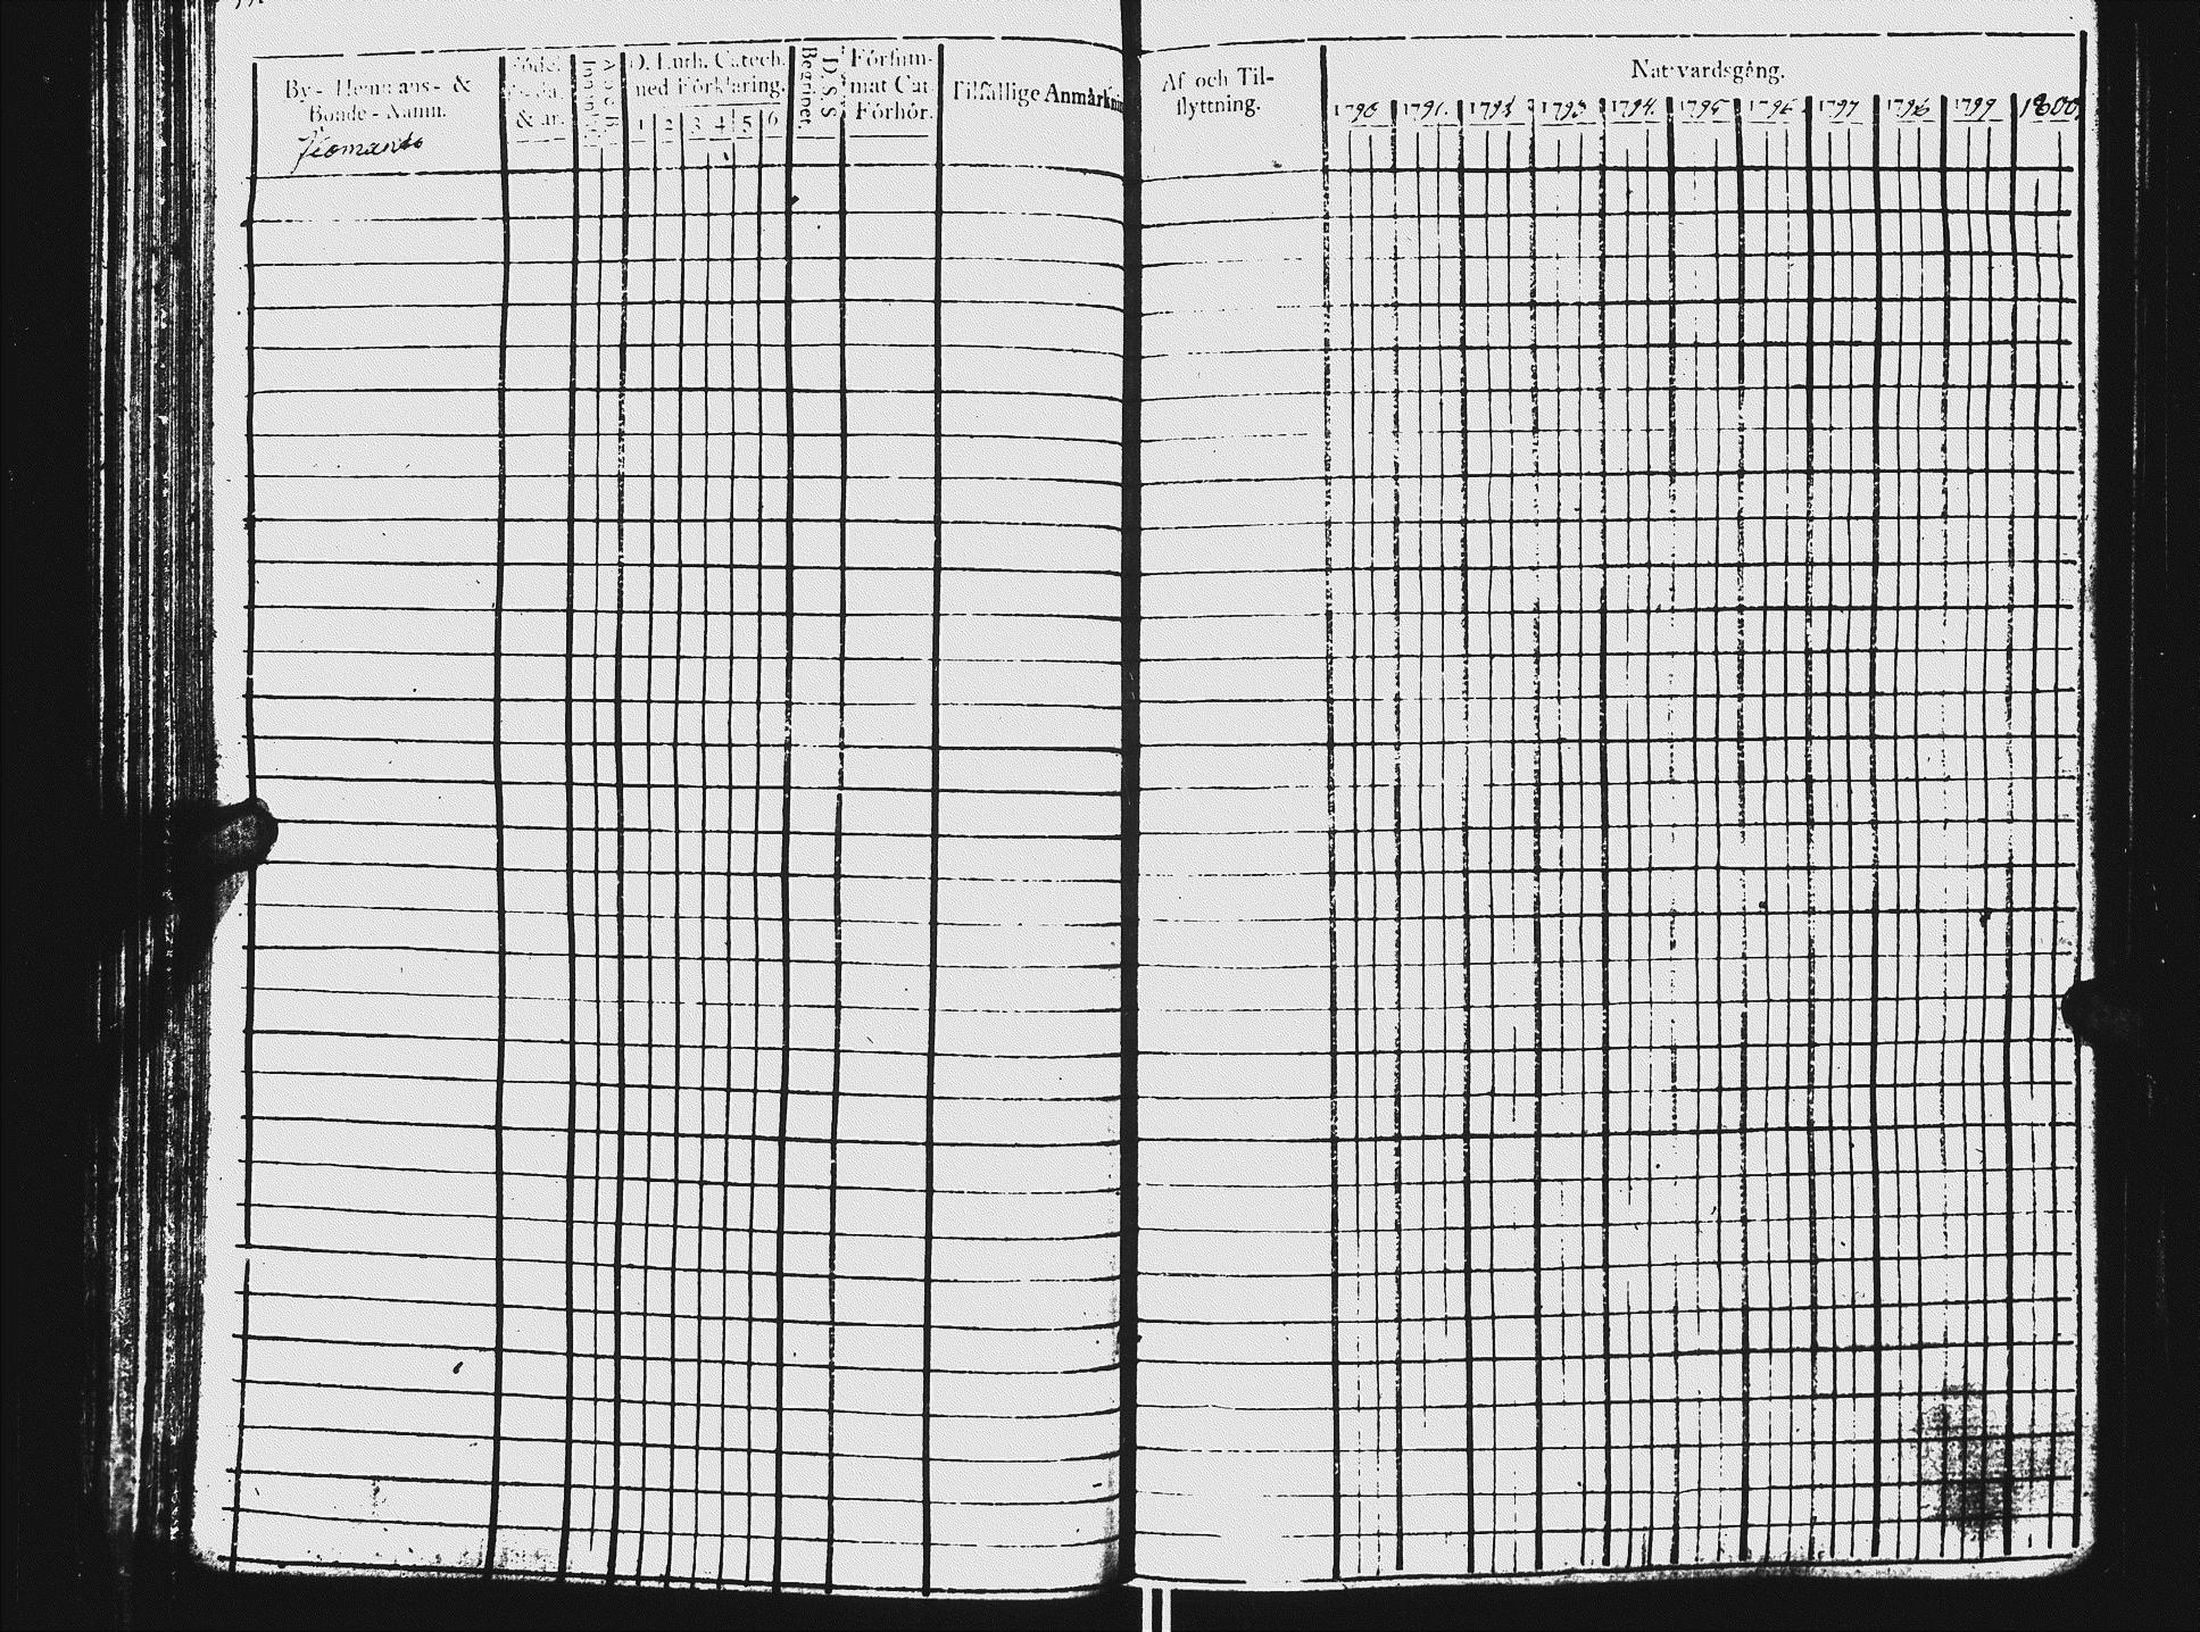 By- Hemmans- &
Bonde-Namn.
Födel.
& år.
Innan L.
D. Luth. Catech.
med Förklaring.
1 2 3 4 5 6
Begrepet.
D. S. S
Försum-
mat Cat.
Förhör.
Tilfällige Anmärknin
Af och Til-
flyttning.
Nattvardsgång.
1790 1791. 1792 1793 1794. 1795 1796 1797 1798 1799 1800